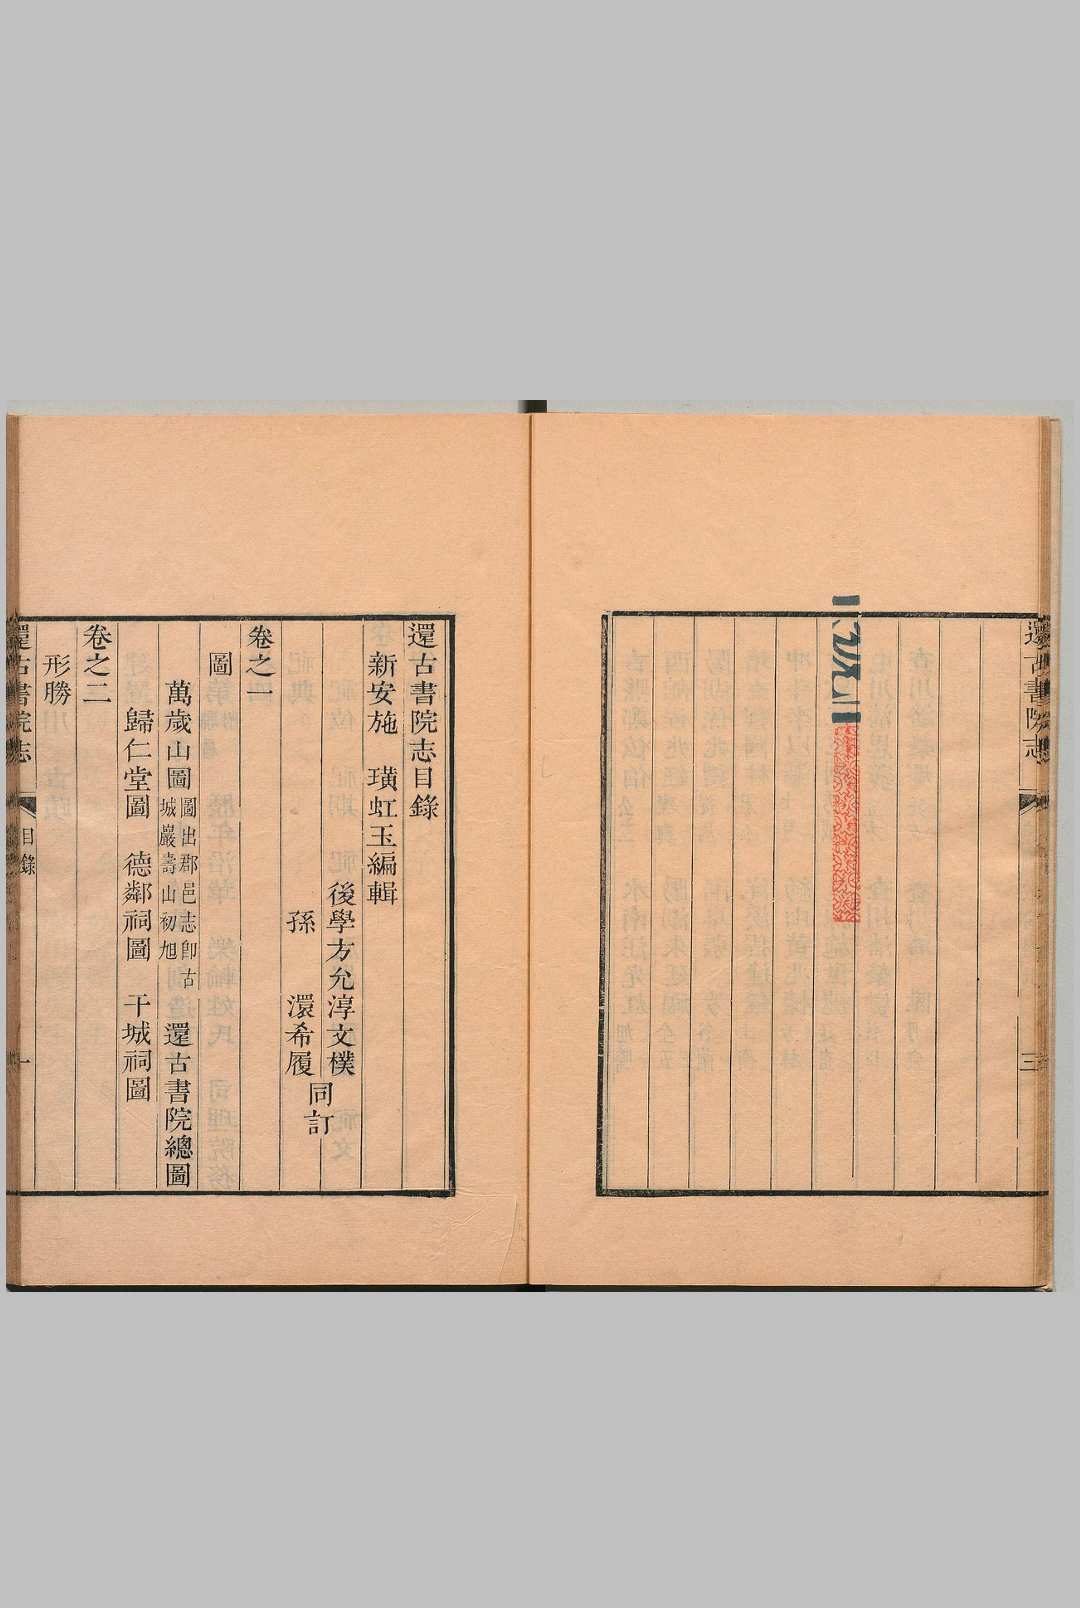 還古書院志
三
還古書院志目錄
新安施　璜虹玉編輯
後學方允淳文樸
孫　　澴希履
同訂
卷之一
圖
萬歲山圖
圖出郡邑志卽古
城巖壽山初旭
還古書院總圖
歸仁堂圖　德鄰祠圖　干城祠圖
卷之二
形勝
還古書院志
目錄
一